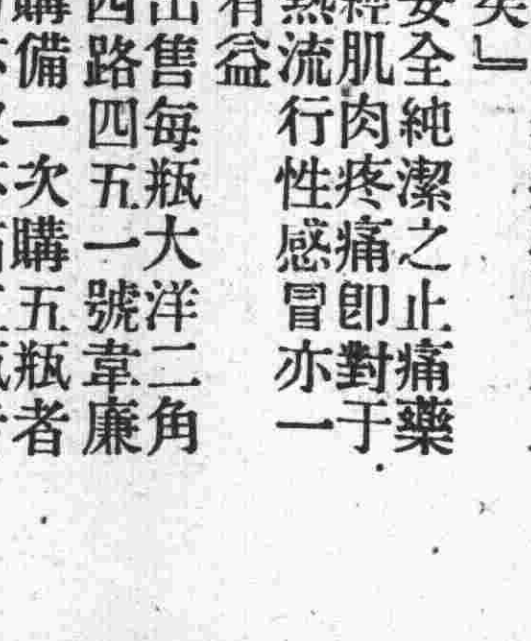 矣』
安全純潔之止痛藥
經肌肉疼痛卽對于
熱流行性感冒亦一
有益
出售每瓶大洋二角
四路四五一號韋廉
購備一次購五瓶者